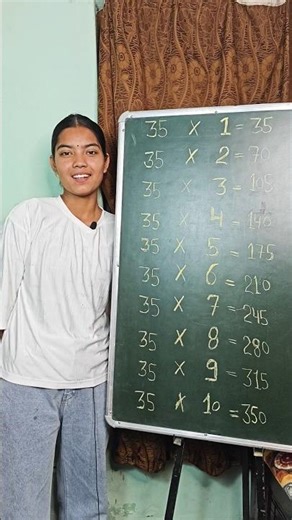 35 X 1 = 35
35 X 2 = 70
35 X 3 = 105
35 X 4 = 140
35 X 5 = 175
35 X 6 = 210
35 X 7 = 245
35 X 8 = 280
35 X 9 = 315
35 X 10 = 350